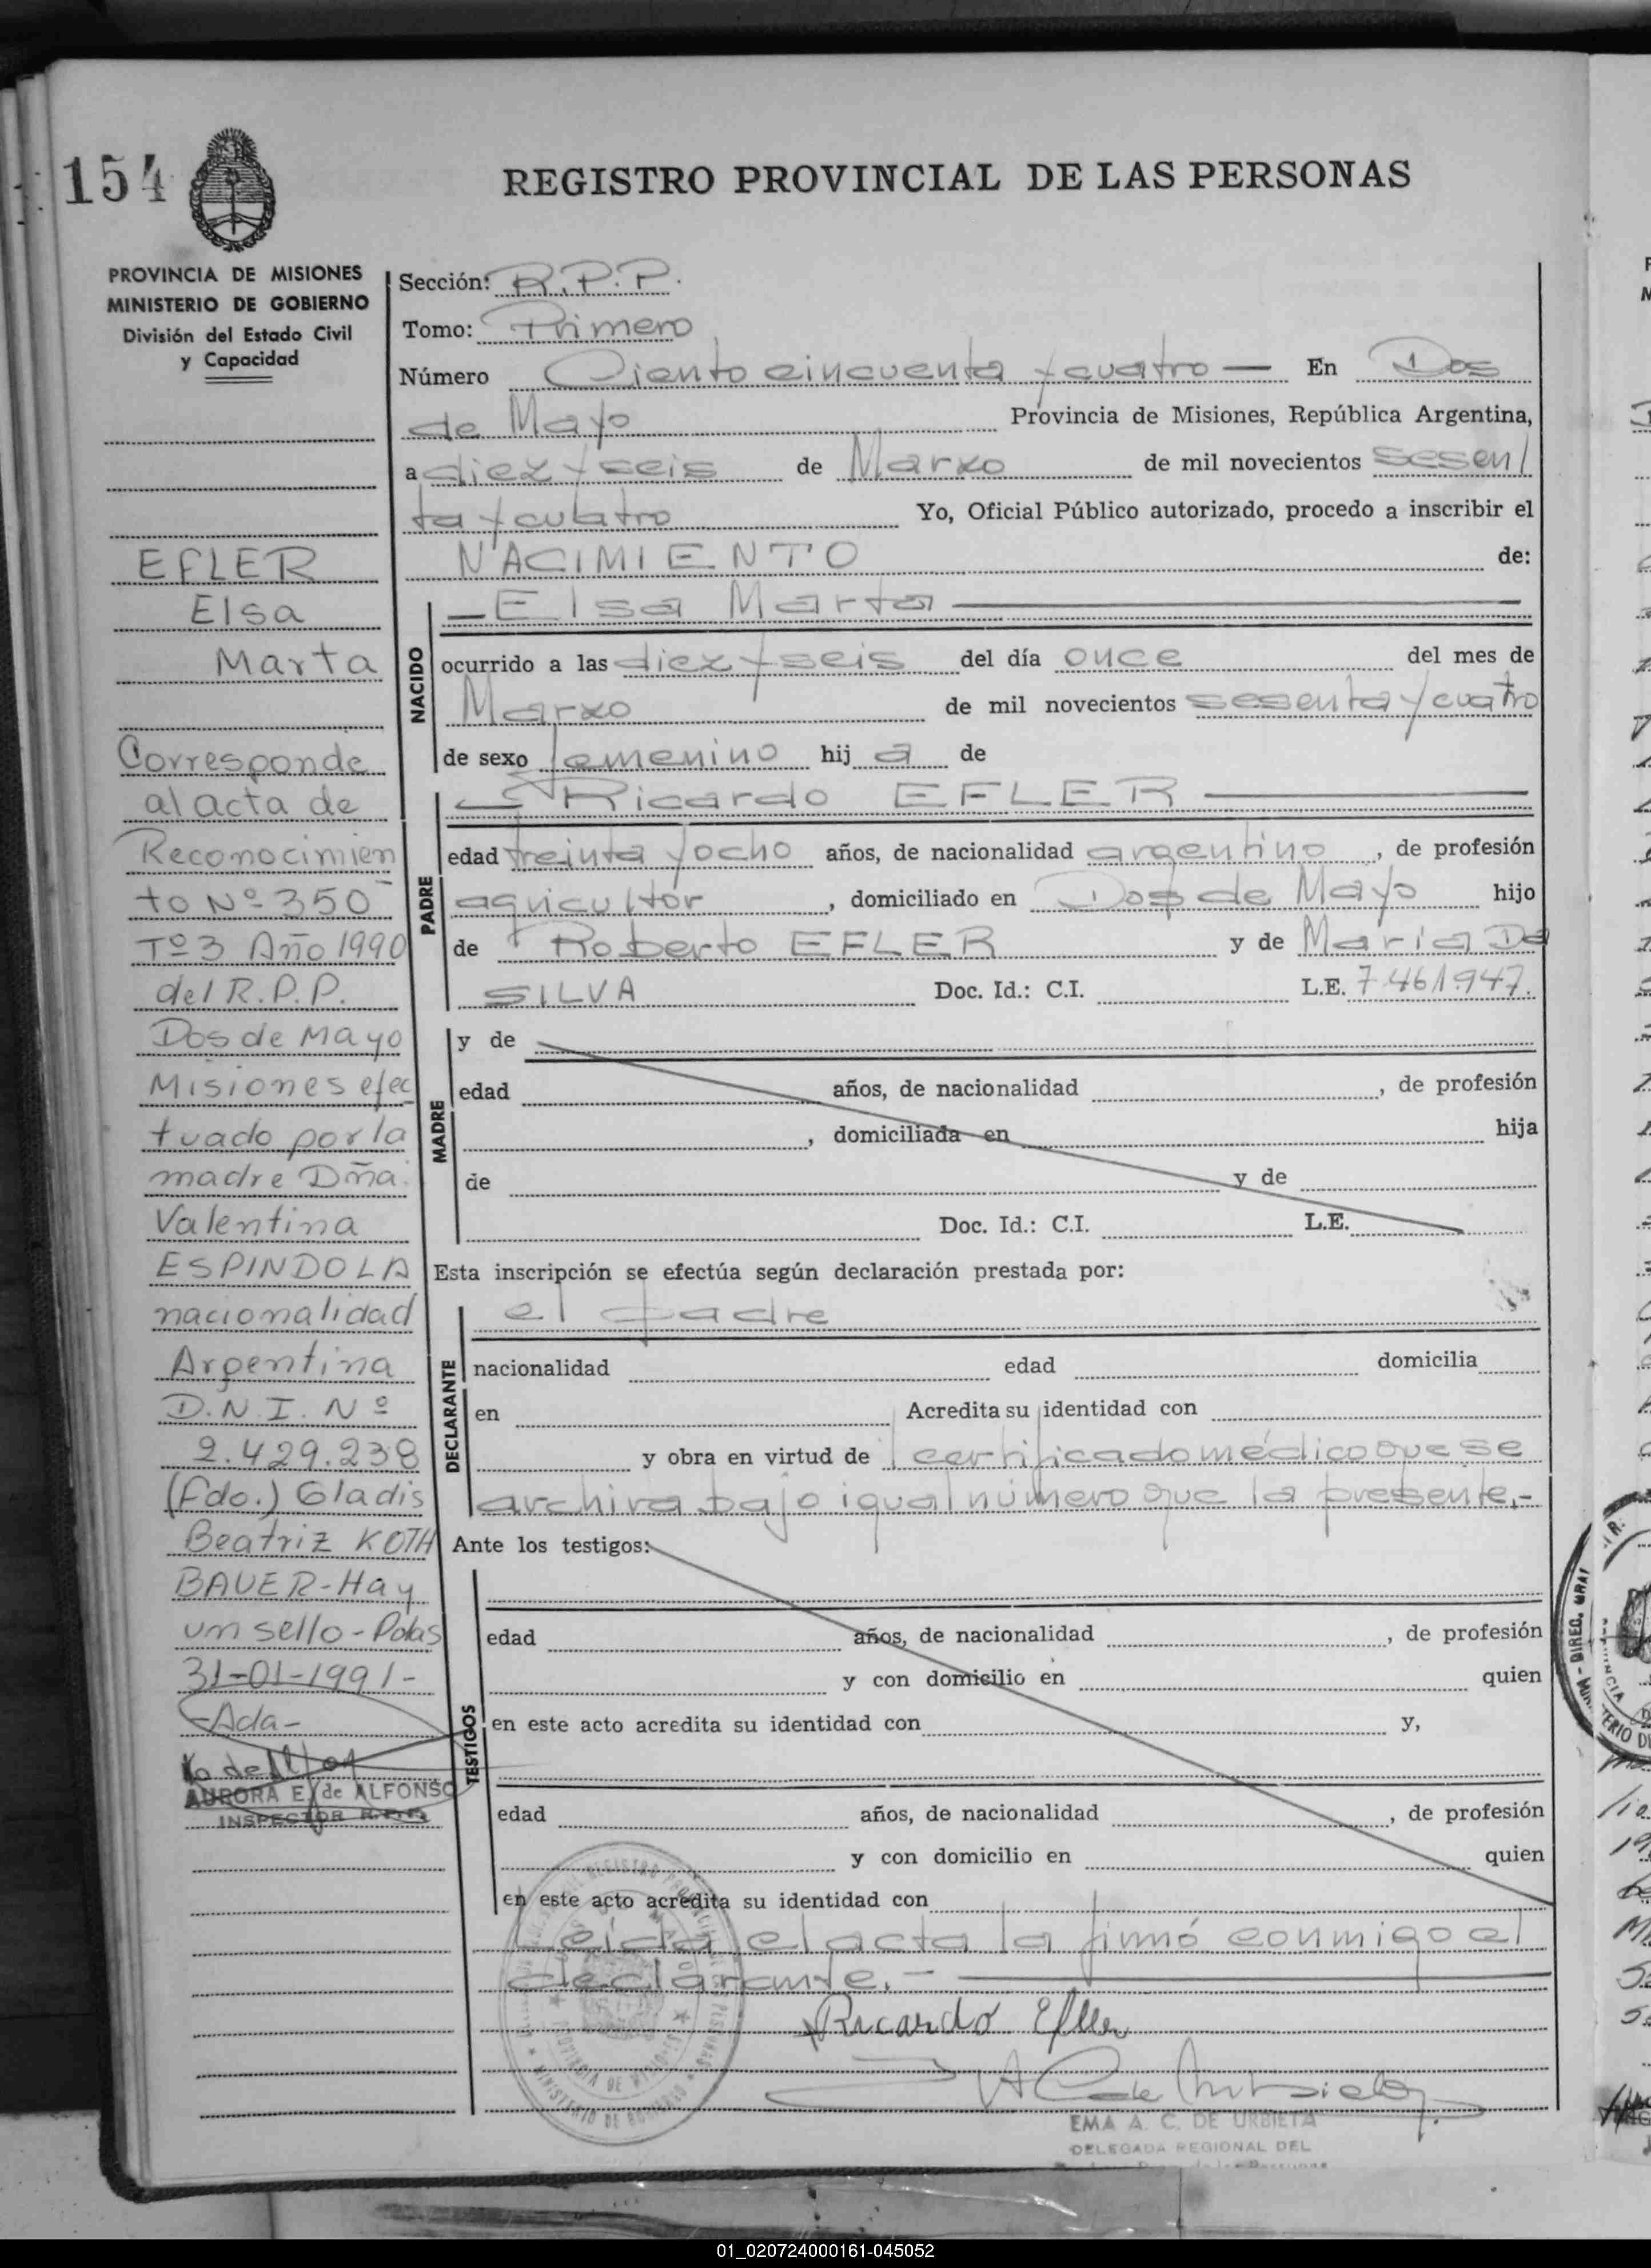 154
REGISTRO PROVINCIAL DE LAS PERSONAS
PROVINCIA DE MISIONES
MINISTERIO DE GOBIERNO
División del Estado Civil
y Capacidad
EFLER
Elsa
Marta
Corresponde
al acta de
Reconocimien
to Nº 350
Tº 3 Año 1990
del R.P.P.
Dos de Mayo
Misiones efec
tuado por la
madre Dña.
Valentina
ESPINDOLA
nacionalidad
Argentina
D.N.I. Nº
2.429.238
(Fdo.) Gladis
Beatriz KOTH
BAUER-Hay
un sello-Pdas
31-01-1991-
-Ada-
AURORA E. de ALFONSO
INSPECTOR R.P.P.
Sección: R.P.P.
Tomo: Primero
Número Ciento cincuenta y cuatro — En Dos
de Mayo Provincia de Misiones, República Argentina,
a diez y seis de Marzo de mil novecientos sesen/
ta y cuatro Yo, Oficial Público autorizado, procedo a inscribir el
NACIMIENTO de:
NACIDO
— Elsa Marta —
ocurrido a las diez y seis del día once del mes de
Marzo de mil novecientos sesenta y cuatro
de sexo femenino hij a de
PADRE
— Ricardo EFLER —
edad treinta y ocho años, de nacionalidad argentino, de profesión
agricultor, domiciliado en Dos de Mayo hijo
de Roberto EFLER y de Maria Da
SILVA Doc. Id.: C.I. L.E. 7.461.947.
MADRE
y de
edad años, de nacionalidad , de profesión
, domiciliada en hija
de y de
Doc. Id.: C.I. L.E.
Esta inscripción se efectúa según declaración prestada por:
DECLARANTE
el padre
nacionalidad edad domicilia
en Acredita su identidad con
y obra en virtud de certificado médico que se
archiva bajo igual número que la presente.-
Ante los testigos:
TESTIGOS
edad años, de nacionalidad , de profesión
y con domicilio en quien
en este acto acredita su identidad con y,
edad años, de nacionalidad , de profesión
y con domicilio en quien
en este acto acredita su identidad con
Leída el acta la firmó conmigo el
declarante.-
Ricardo Efler
EMA A. C. DE URBIETA
DELEGADA REGIONAL DEL
01_020724000161-045052